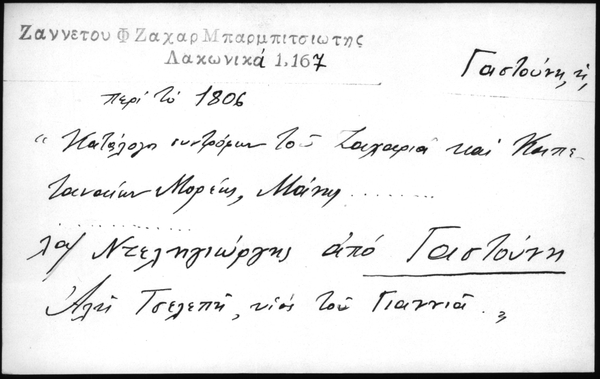 Ζαννετου Φ Ζαχαρ Μπαρμπιτσιωτης
Λακωνικά 1,167
Γαστούνη, ἡ,
περί τό 1806
“ Κατάλογοι συντρόφων τοῦ Ζαχαριᾶ καί Καπε-
ταναίων Μορέως, Μάνης ........
..........
λα) Ντεληγιώργης ἀπό Γαστούνη
Ἀλῆ Τσελεπῆ, υἱός τοῦ Γιαννιᾶ . „